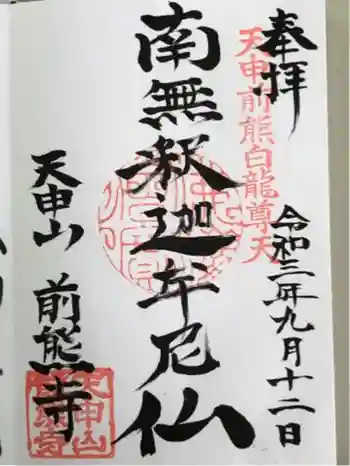 奉拝
天申前熊白龍尊天
令和三年九月十二日
南無釈迦牟尼仏
天申山
前熊寺